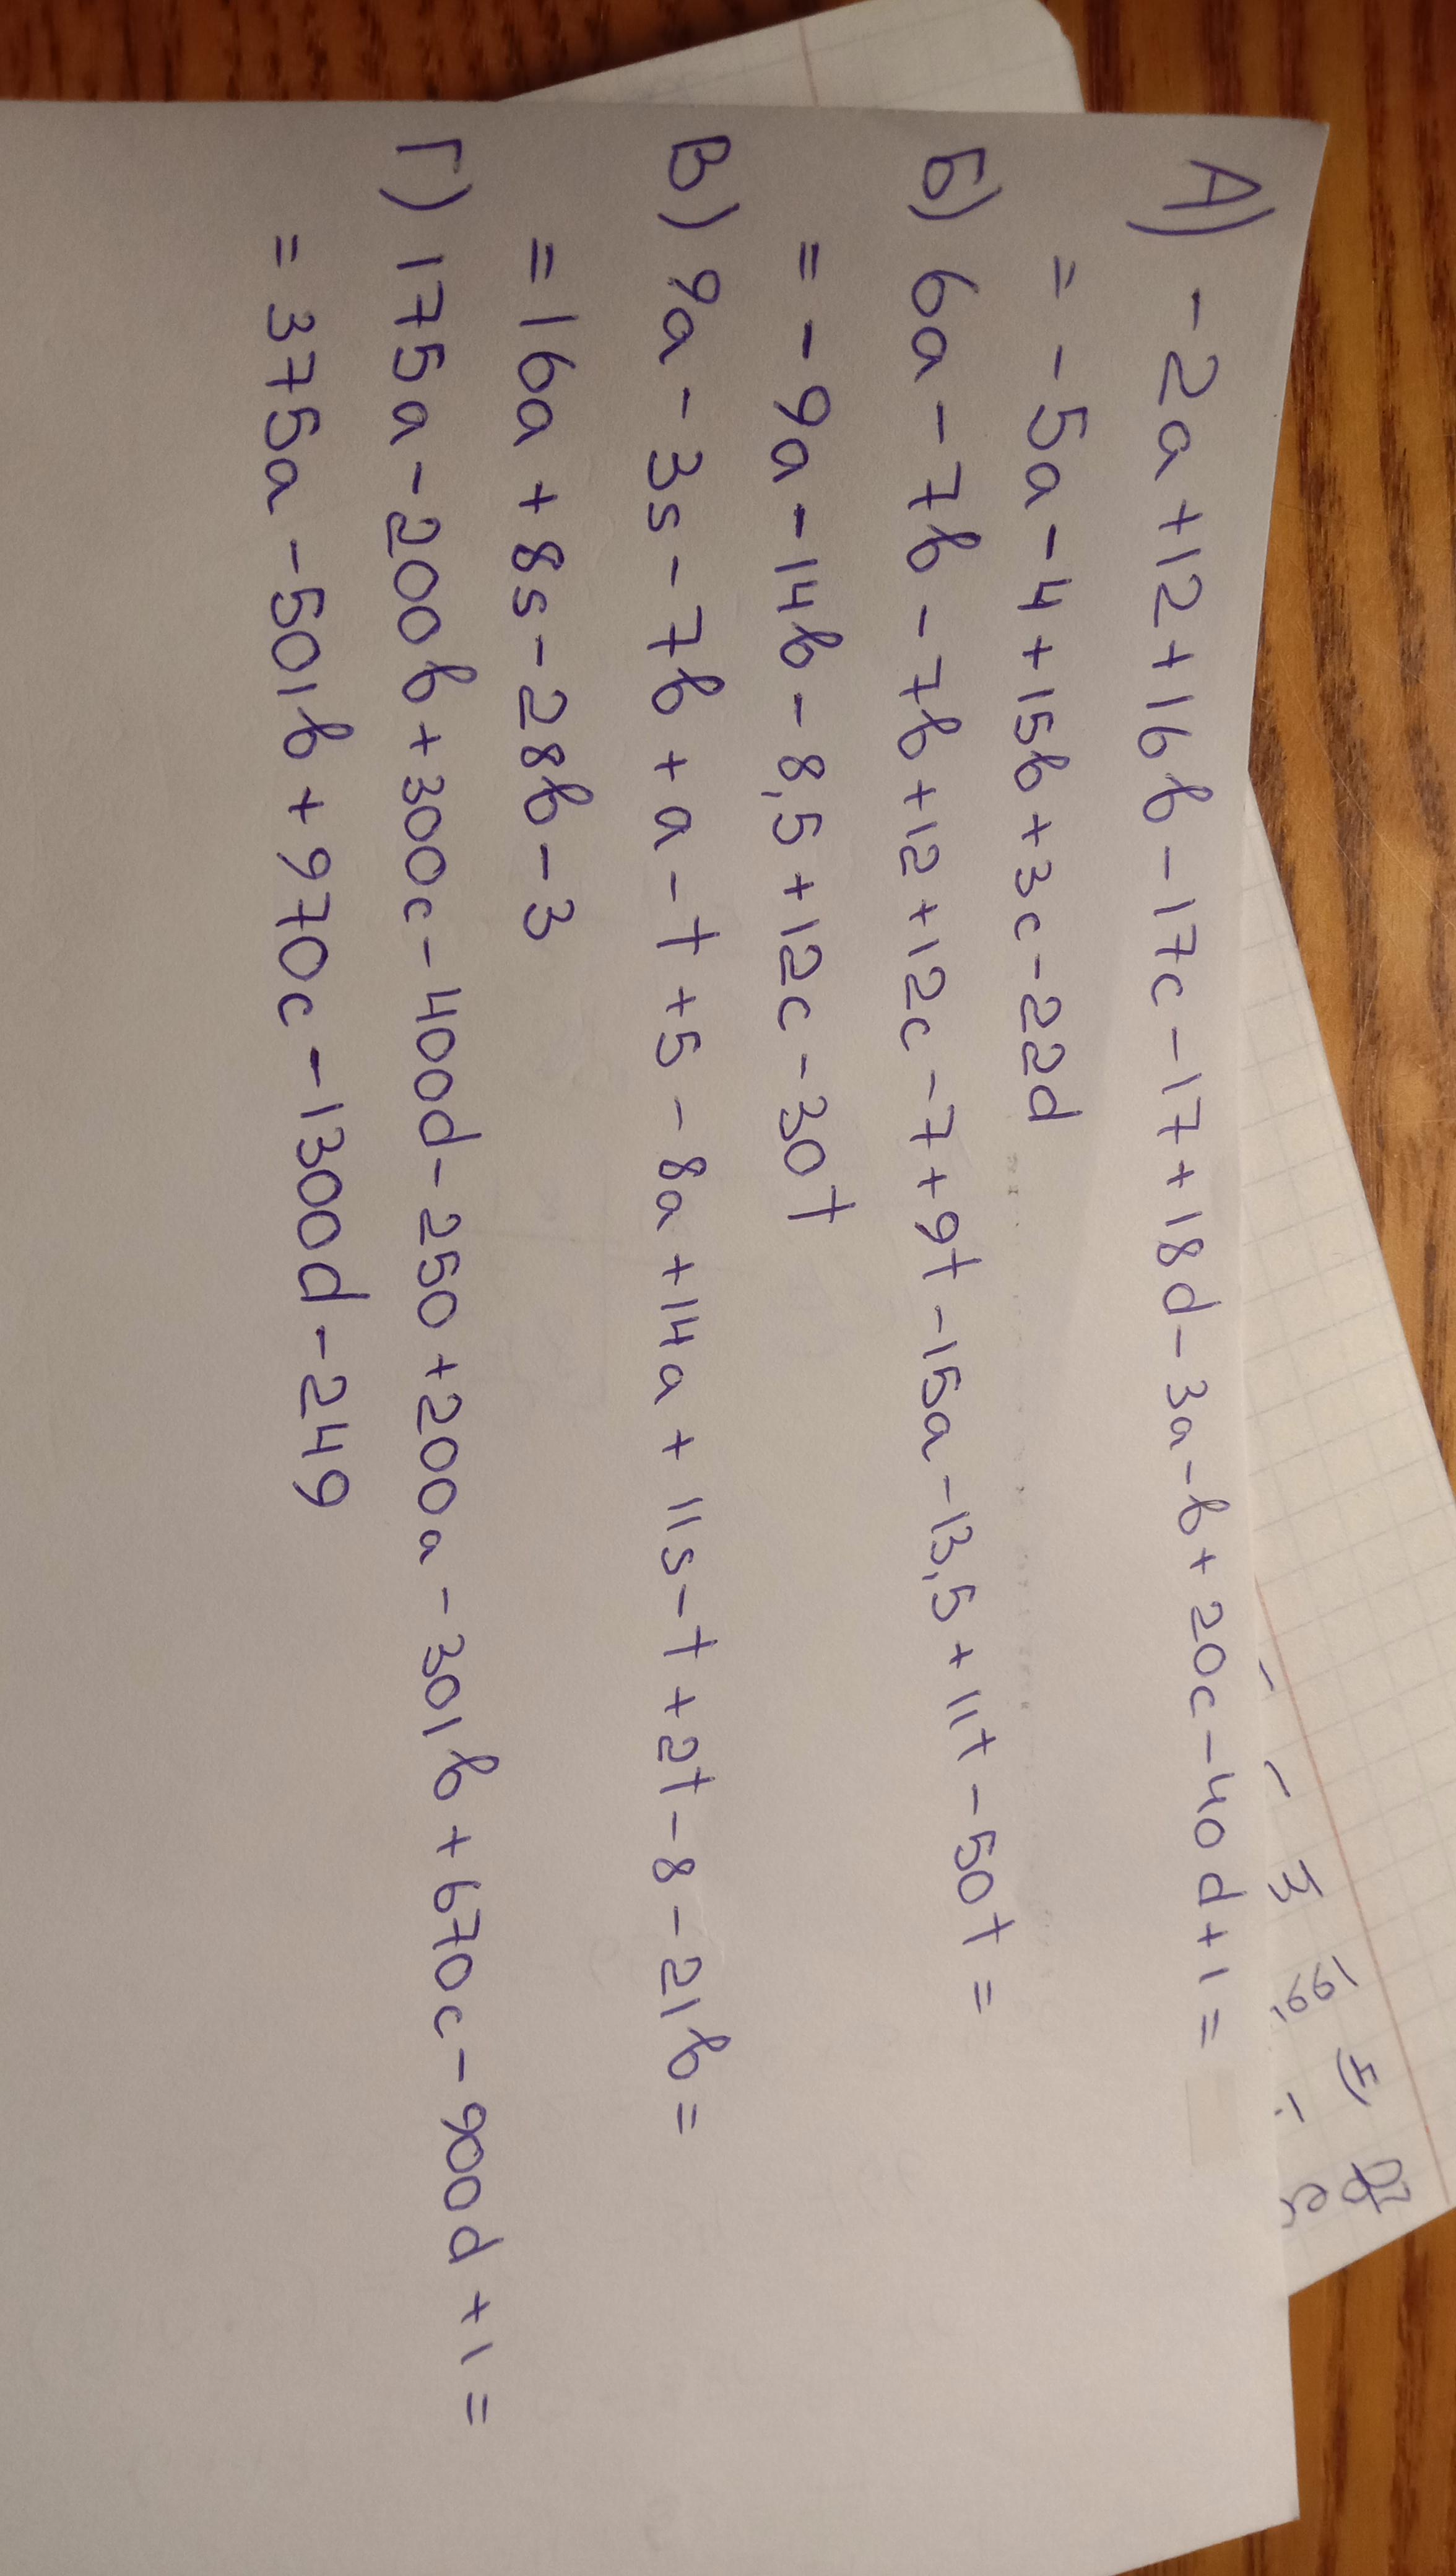 А) -2a+12+16b-17c-17+18d-3a-b+20c-40d+1=
= -5a-4+15b+3c-22d
Б) 6a-7b-7b+12+12c-7+9t-15a-13,5+11t-50t=
= -9a-14b-8,5+12c-30t
В) 9a-3s-7b+a-t+5-8a+14a+11s-t+2t-8-21b=
= 16a+8s-28b-3
Г) 175a-200b+300c-400d-250+200a-301b+670c-900d+1=
= 375a-501b+970c-1300d-249